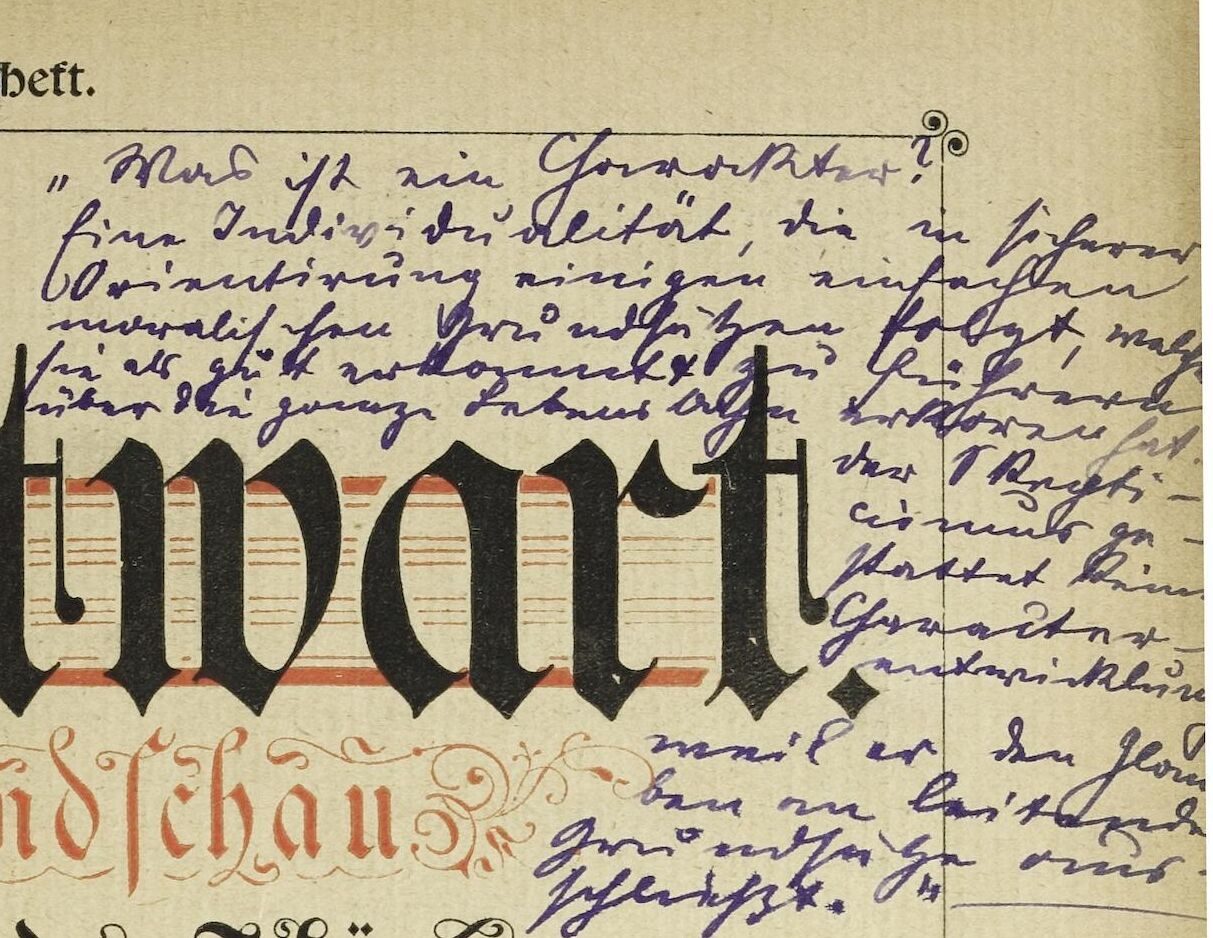 heft.
„Was ist ein Charakter?
Eine Individualität, die in sicherer
Orientirung einigen einfachen
moralischen Grundsätzen folgt, welche
sie als gut erkannt & zu Führern
über die ganze Lebensbahn erkoren hat.
der Skepti-
cismus ge-
stattet kein
Character-
entwicklun
weil er den Glau
ben an leitende
Grundsätze aus-
schließt."
twart.
ndschau